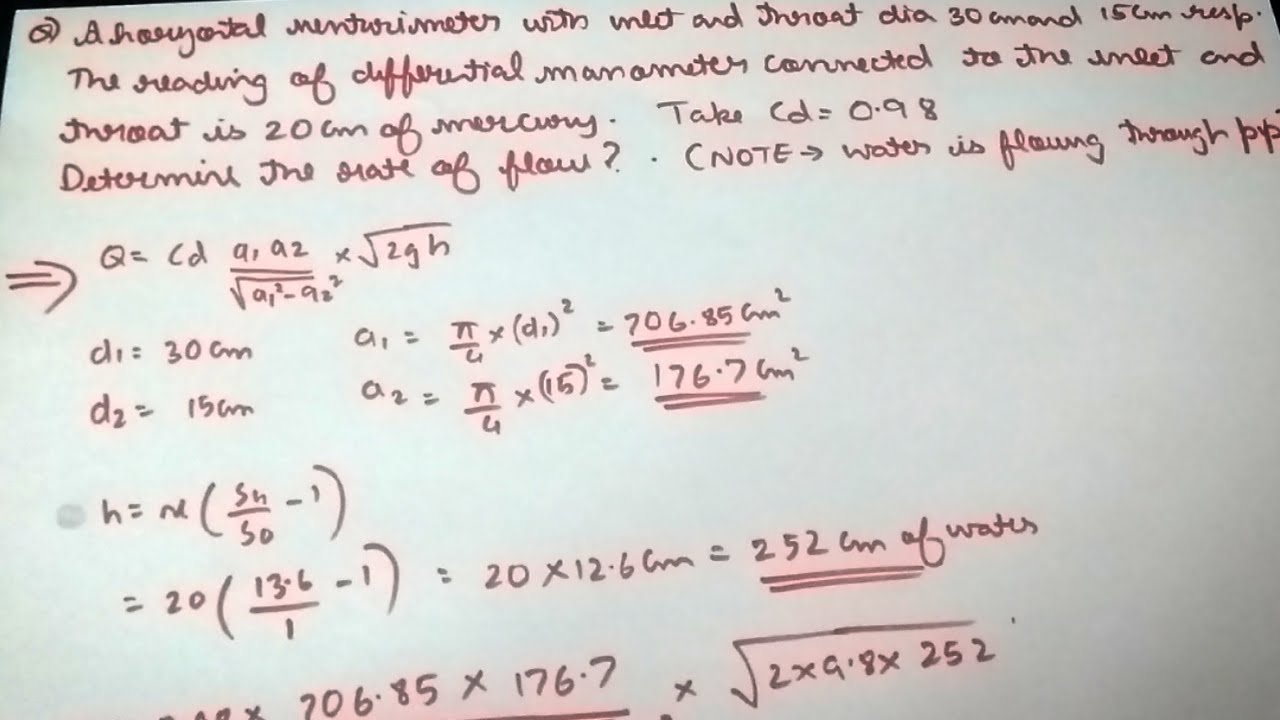 Q) A horizontal venturimeter with inlet and throat dia 30cm and 15cm resp.
The reading of differential manometer connected to the inlet and
throat is 20cm of mercury. Take Cd = 0.98
Determine the rate of flow? . (NOTE → water is flowing through pip
⇒ Q = Cd a₁ a₂ / √(a₁² - a₂²) × √2gh
d₁ = 30cm a₁ = π/4 × (d₁)² = 706.85cm²
d₂ = 15cm a₂ = π/4 × (15)² = 176.7cm²
h = x (Sh/So - 1)
= 20 (13.6/1 - 1) = 20 × 12.6cm = 252 cm of water
× 706.85 × 176.7 × √2×9.8×252